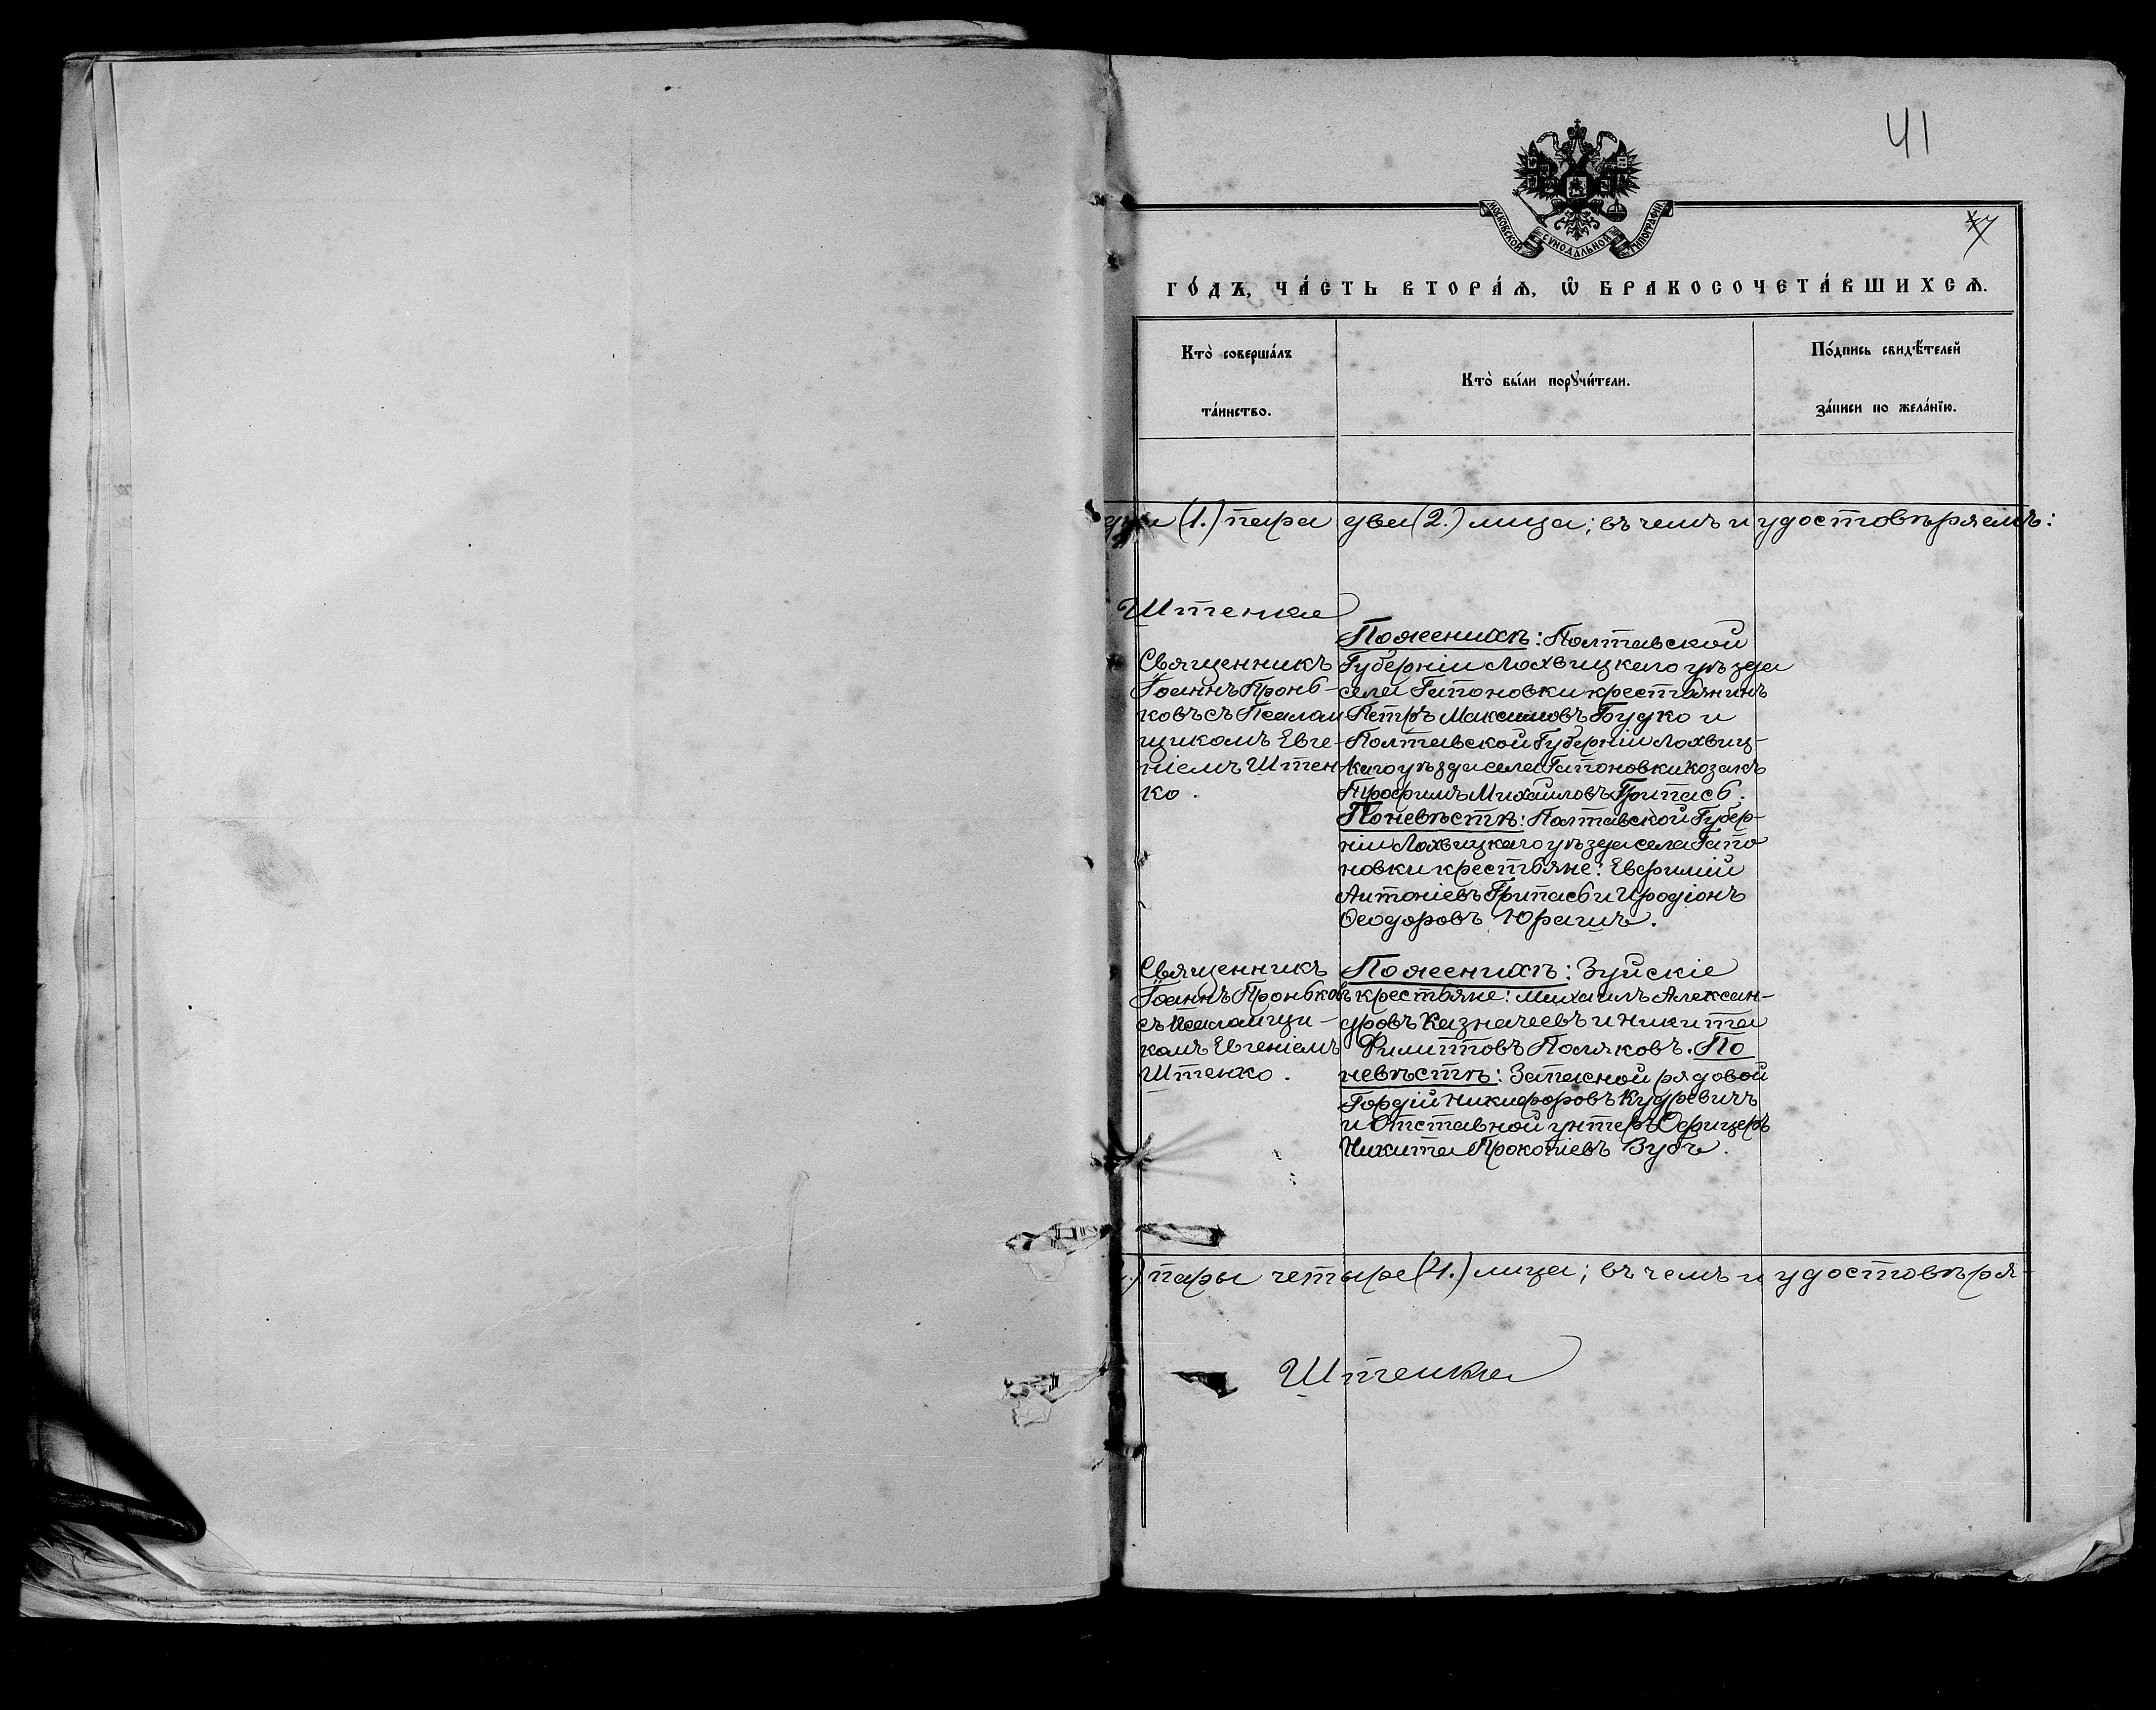 41
МОСКОВСКОЙ СѴНОДАЛЬНОЙ ТИПОГРАФІИ
ГО́ДЪ, ЧА́СТЬ ВТОРА́Ѧ, Ѽ БРАКОСОЧЕТА́ВШИХСѦ.
Кто̀ соверша́лъ
та́инство.
Кто̀ бы́ли порꙋчи́тели.
По́дпись свидѣ́телей
за́писи по жела́нїю.
(1.) пара два (2.) лица; въ чемъ и удостовѣряемъ:
Штенко
Священникъ
Іоаннъ Пронь-
ковъ съ Псалом
щикомъ Евге-
ніемъ Штен
ко.
По женихѣ: Полтавской
Губерніи Лохвицкаго уѣзда
села Гапоновки крестьянинъ
Петръ Максимовъ Будко и
Полтавской Губерніи Лохвиц-
каго уѣзда села Гапоновки козакъ
Трофимъ Михайловъ Припась.
По невѣстѣ: Полтавской Губер-
ніи Лохвицкаго уѣзда села Гапо
новки крестьяне: Евфимій
Антоніевъ Припась и Иродіонъ
Ѳеодоровъ Юрашъ.
Священникъ
Іоаннъ Проньковъ
съ Псаломщи-
комъ Евгеніемъ
Штенко.
По женихѣ: Зуйскіе
крестьяне: Михаилъ Алексан-
дровъ Казначеевъ и Никита
Филипповъ Поляковъ. По
невѣстѣ: Запасной рядовой
Гордій Никифоровъ Кудревичъ
и Отставной унтеръ Офицеръ
Никита Прокопіевъ Зубъ.
пары четыре (4.) лица; въ чемъ и удостовѣря-
Штенко